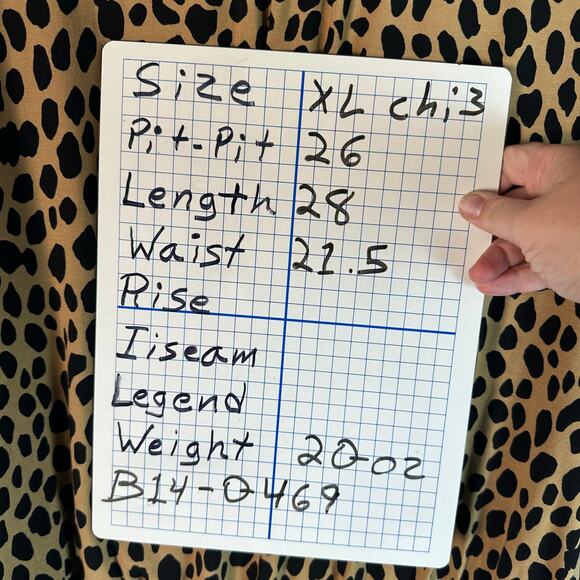 Size XL chi3
Pit-Pit 26
Length 28
Waist 21.5
Rise
Iiseam
Legend
Weight 20oz
B14-0469